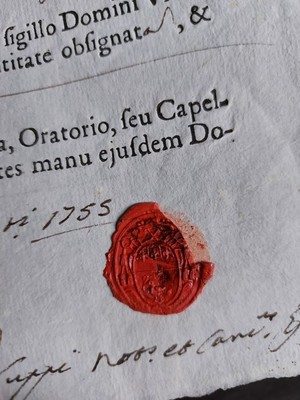 ſigillo Domini
titate obſignat, &
a, Oratorio, ſeu Capel-
tes manu ejuſdem Do-
1755
not.s et Canc.